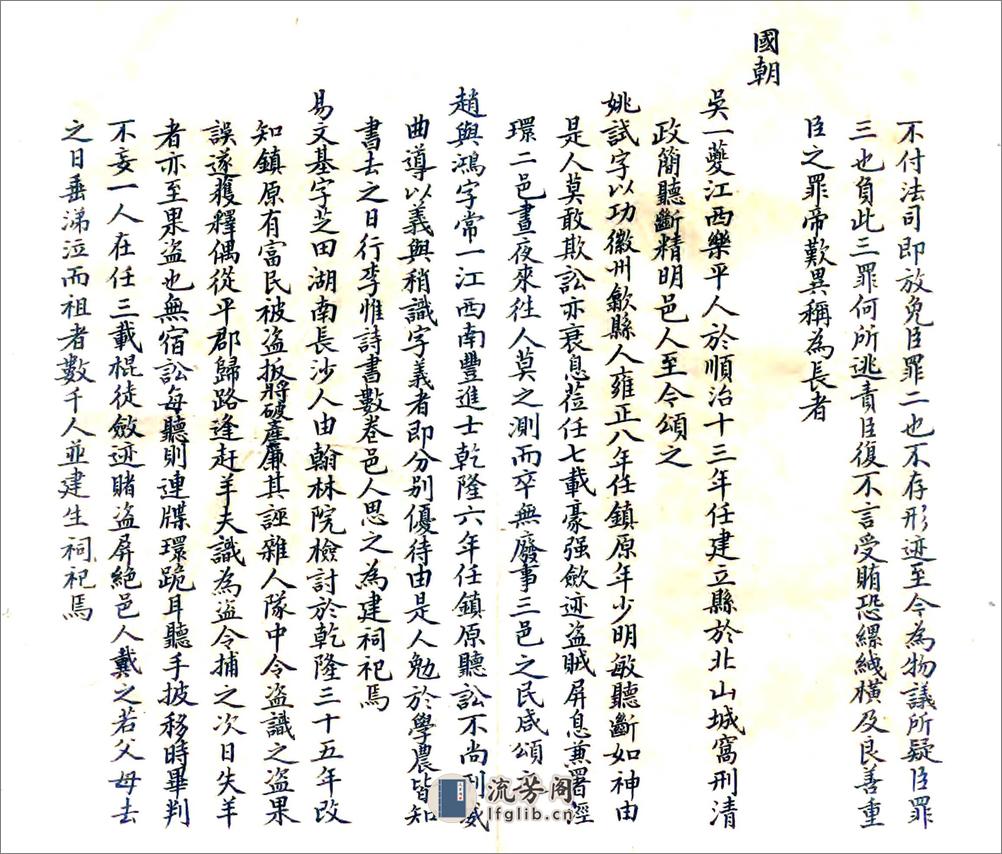 不付法司即放免臣罪二也不存形迹至令為物議所疑臣罪
三也負此三罪何所逃責臣復不言受賄恐縲絏橫及良善重
臣之罪帝歎異稱為長者
國朝
吳一夔江西樂平人於順治十三年任建立縣於北山城窩刑清
政簡聽斷精明邑人至今頌之
姚試字以功徽州歙縣人雍正八年任鎮原年少明敏聽斷如神由
是人莫敢欺訟亦衰息蒞任七載豪强斂迹盜賊屏息兼署涇
環二邑晝夜來往人莫之測而卒無廢事三邑之民咸頌
趙與鴻字常一江西南豐進士乾隆六年任鎮原聽訟不尚刑威
曲導以義與稍識字義者即分別優待由是人勉於學農皆知
書去之日行李惟詩書數卷邑人思之為建祠祀焉
易文基字芝田湖南長沙人由翰林院檢討於乾隆三十五年改
知鎮原有富民被盜扳將破產廉其誣雜人隊中令盜識之盜果
誤遂獲釋偶從平郡歸路逢赶羊夫識為盜令捕之次日失羊
者亦至果盜也無宿訟每聽則連牒環跪耳聽手披移時畢判
不妄一人在任三載棍徒斂迹賭盜屏絕邑人戴之若父母去
之日垂涕泣而祖者數千人並建生祠祀焉
流芳阁
lfglib.cn